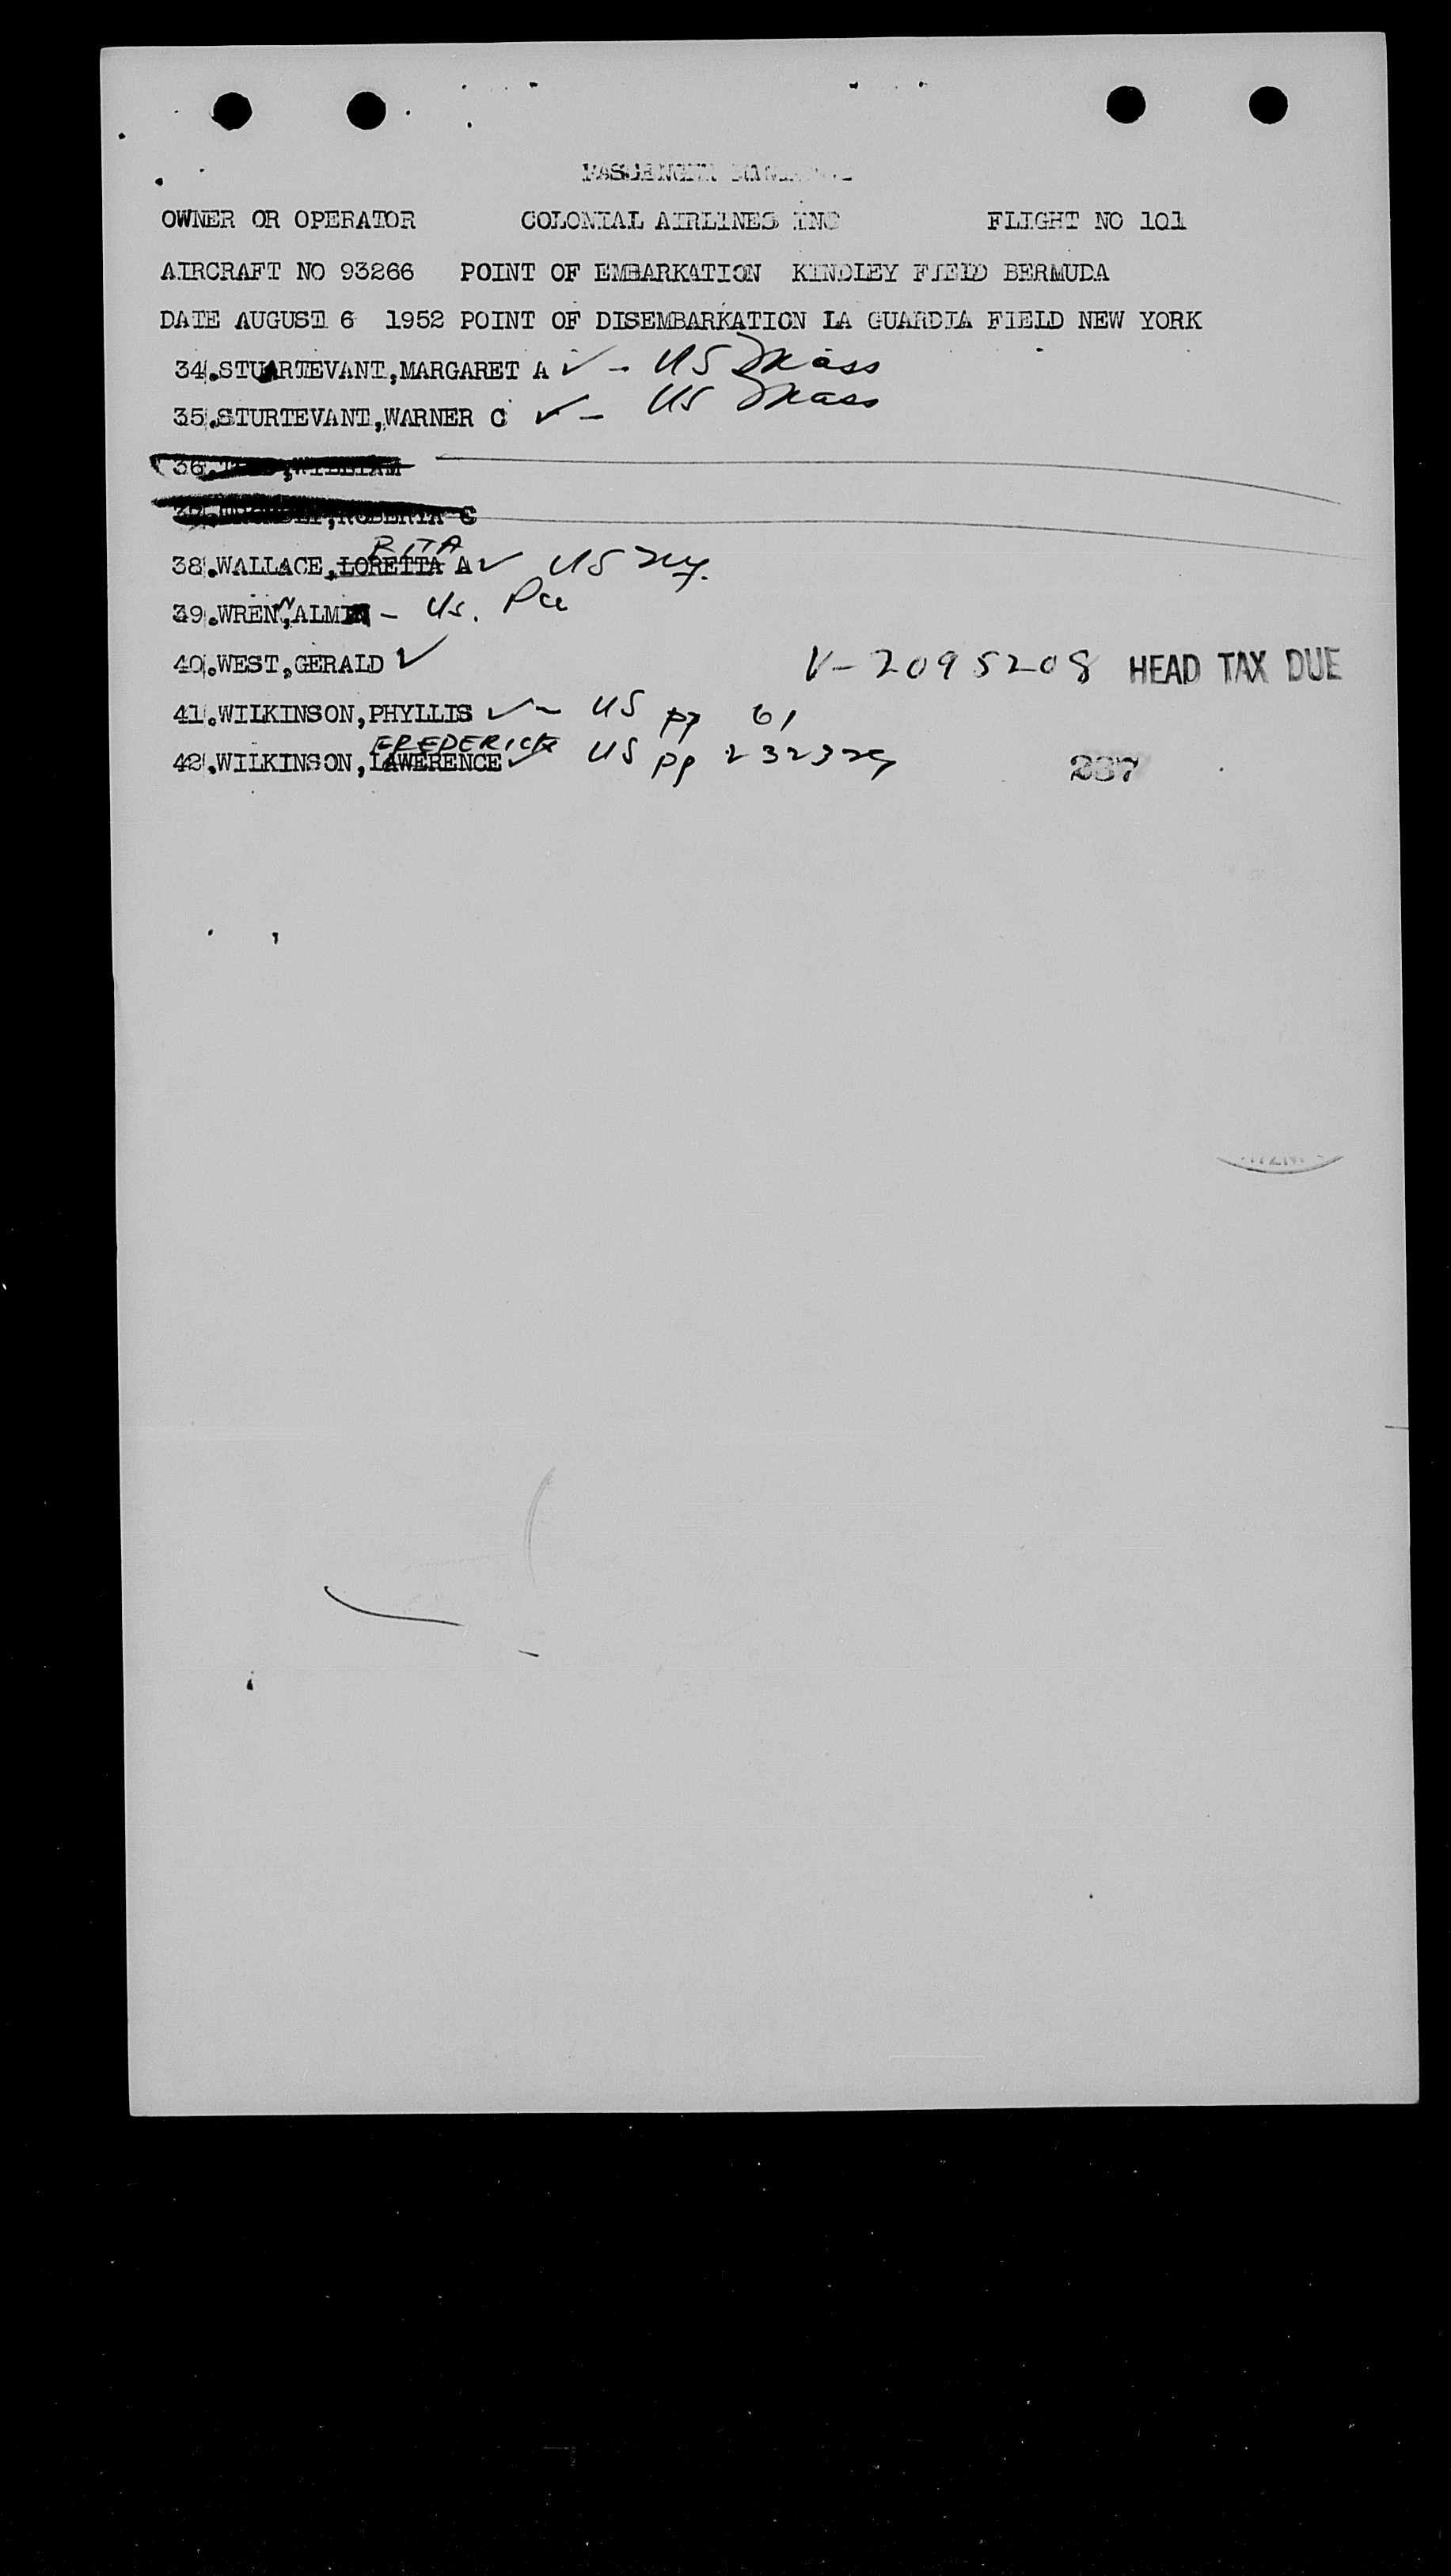 PASSENGER MANIFEST
OWNER OR OPERATOR COLONIAL AIRLINES INC FLIGHT NO 101
AIRCRAFT NO 93266 POINT OF EMBARKATION KINDLEY FIELD BERMUDA
DATE AUGUST 6 1952 POINT OF DISEMBARKATION LA GUARDIA FIELD NEW YORK
34.STUARTEVANT,MARGARET A ✓ - US Mass
35.STURTEVANT,WARNER C ✓ - US Mass
36. ,WILLIAM
37. ,ROBERTA C
RITA
38.WALLACE,LORETTA A ✓ US NY.
39.WREN,ALM - US. Pa
40.WEST,GERALD ✓ V-2095208 HEAD TAX DUE
41.WILKINSON,PHYLLIS ✓ - US pp 61
FREDERICK
42.WILKINSON,LAWERENCE ✓ US pp 237